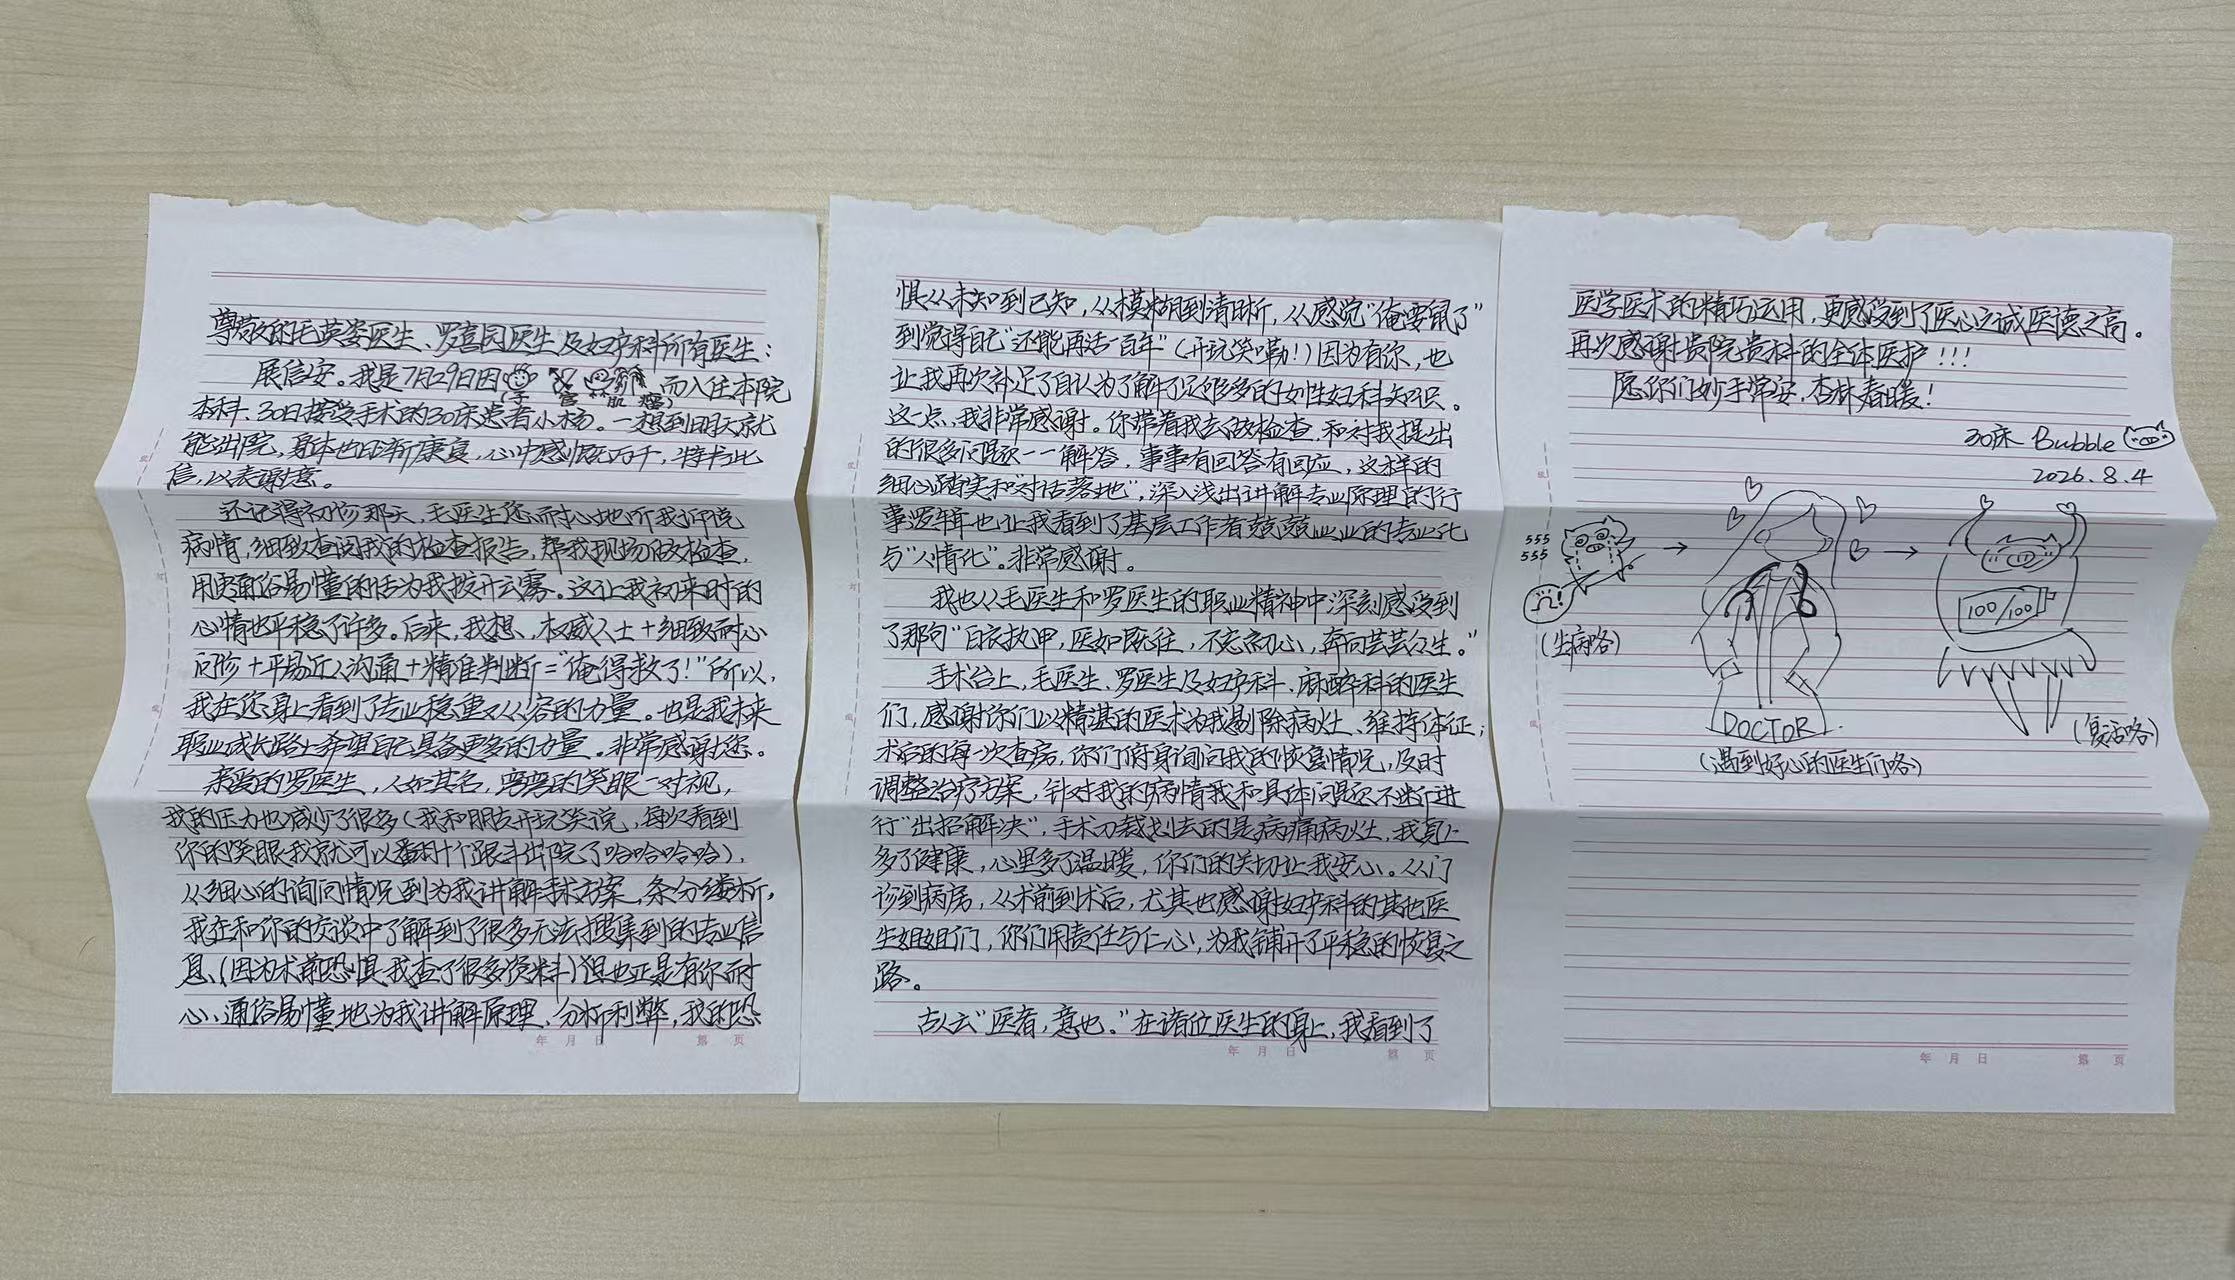 尊敬的毛英姿医生、罗喜园医生及妇产科所有医生：
展信安。我是7月29日因
(子宫肌瘤)而入住本院
本科、30日接受手术的30床患者小杨。一想到明天就
能出院，身体也日渐康复，心中感慨万千，特书此
信，以表谢意。
还记得初诊那天，毛医生您耐心地听我讲完
病情，细致查阅我的检查报告，帮我现场做检查，
用通俗易懂的话为我拨开云雾。这让我初来时的
心情也平稳了许多。后来，我想，权威人士+细致耐心
问诊+平易近人沟通+精准判断="俺得救了！"所以，
我在您身上看到了专业稳重又从容的力量。也是我未来
职业成长路上希望自己具备更多的力量。非常感谢您。
亲爱的罗医生，人如其名，弯弯的笑眼一对视，
我的压力也减少了很多(我和朋友开玩笑说，每次看到
你的笑眼我就可以翻十个跟斗出院了哈哈哈哈)，
从细心的询问情况到为我讲解手术方案，条分缕析，
我在和你的交谈中了解到了很多无法搜集到的专业信
息、(因为术前恐惧我查了很多资料)但也正是有你耐
心、通俗易懂地为我讲解原理、分析利弊，我的恐
惧从未知到已知，从模糊到清晰，从感觉"俺要鼠了"
到觉得自己"还能再活一百年"(开玩笑嘞！)因为有你，也
让我再次补足了自认为了解了足够多的女性妇科知识。
这一点，我非常感谢。你带着我去做检查、和对我提出
的很多问题一一解答，事事有回答有回应，这样的
细心踏实和"对话落地"，深入浅出讲解专业原理的行
事逻辑也让我看到了基层工作者兢兢业业的专业化
与"人情化"。非常感谢。
我也从毛医生和罗医生的职业精神中深刻感受到
了那句"白衣执甲，医如既往，不忘初心，奔向芸芸众生。"
手术台上，毛医生、罗医生及妇产科、麻醉科的医生
们，感谢你们以精湛的医术为我剔除病灶、维持体征；
术后的每一次查房，你们俯身询问我的恢复情况，及时
调整治疗方案，针对我的病情我和具体问题不断进
行"出招解决"，手术刀裁划去的是病痛病灶，我身上
多了健康，心里多了温暖，你们的关切让我安心。从门
诊到病房，从术前到术后，尤其也感谢妇产科的其他医
生姐姐们，你们用责任与仁心，为我铺开了平稳的恢复之
路。
古人云"医者，意也。"在诸位医生的身上，我看到了
医学医术的精巧运用，更感受到了医心之诚医德之高。
再次感谢贵院贵科的全体医护！！！
愿你们妙手常安，杏林春暖！
30床 Bubble
2026.8.4
555
555
(生病咯)
DOCTOR
(遇到好心的医生们咯)
100/100
(复活咯)
年 月 日 第 页
年 月 日 第 页
年 月 日 第 页